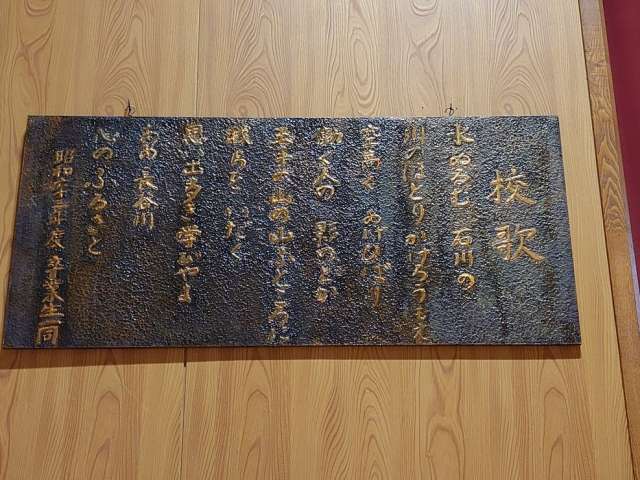 校歌
水ぬるむ 石川の
川のほとりかげろうもえ
空高く あげひばり
働く人の 影のどか
山の山ふところに
城あと いだく
思い出多き 学びやよ
ああ 長谷川
心のふるさと
昭和 年度 卒業生一同